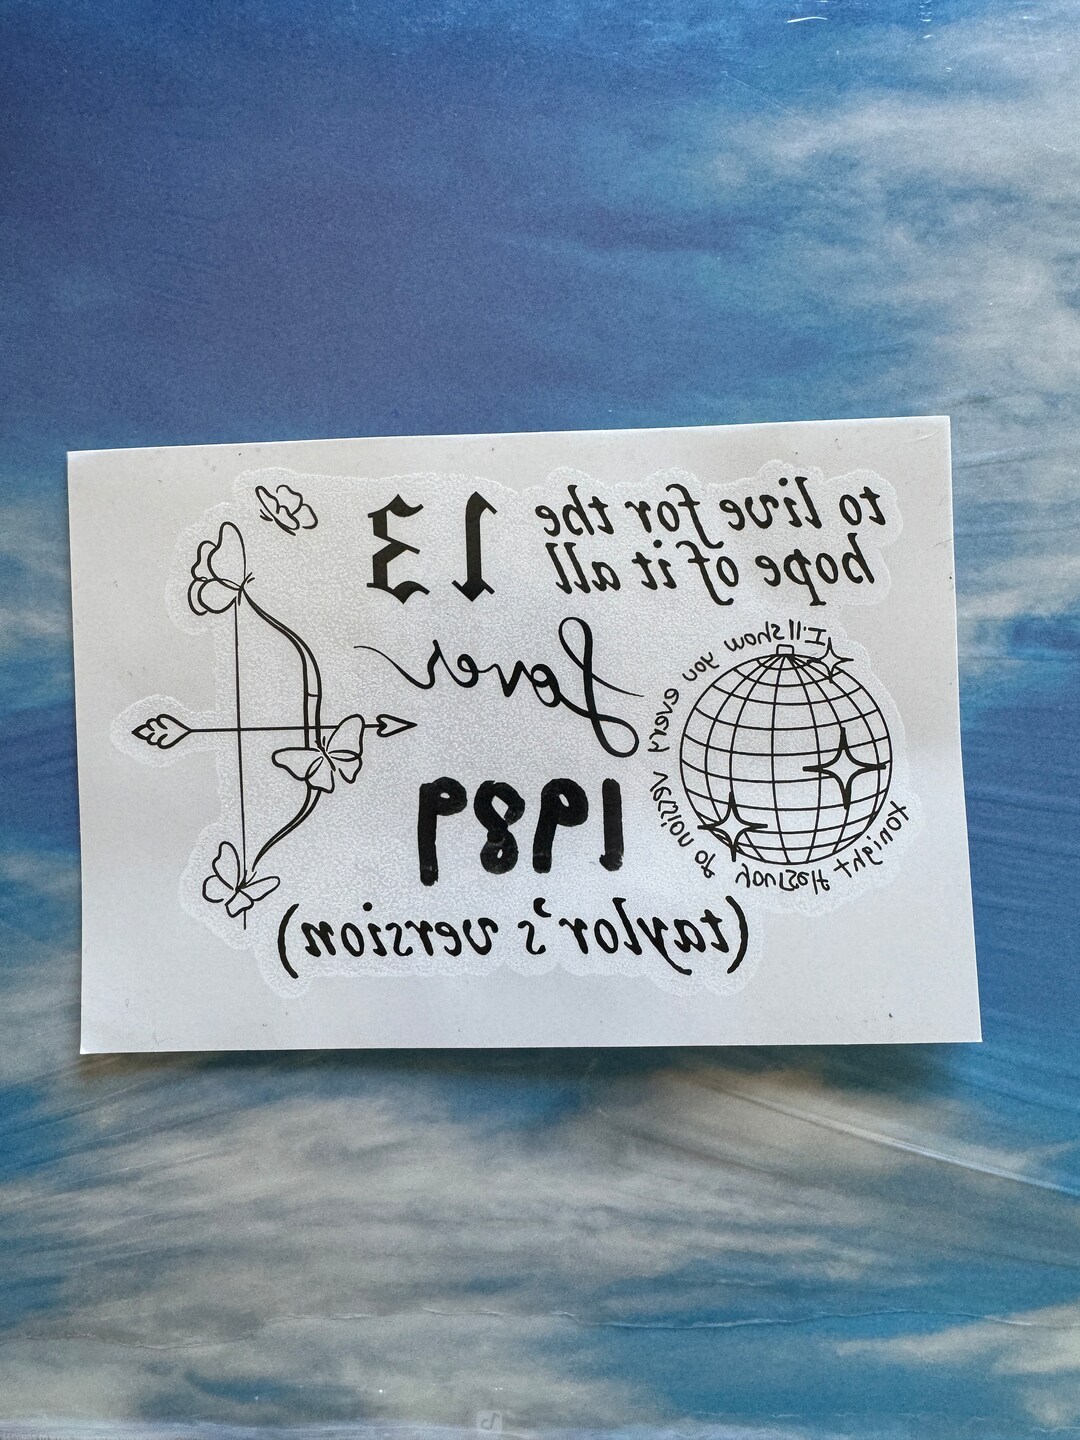 to live for the
hope of it all
13
Lover
1989
(taylor's version)
I'll show you every version of yourself tonight